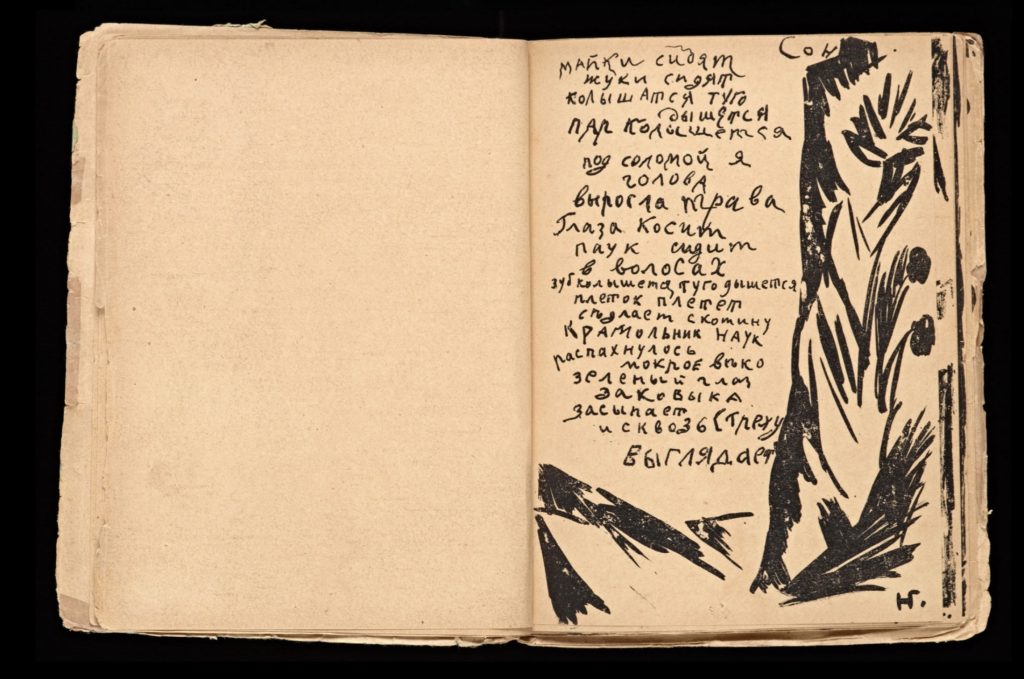 Сон.
майки сидят
жуки сидят
колышатся туго
дышется
пар колышется
под соломой я
голова
выросла трава
Глаза косит
паук сидит
в волосах
зуб колышется туго дышется
плеток плетет
седлает скотину
крамольник наук
распахнулось
мокрое веко
зеленый глаз
заковыка
засыпает
и сквозь стреху
выглядает
НГ.